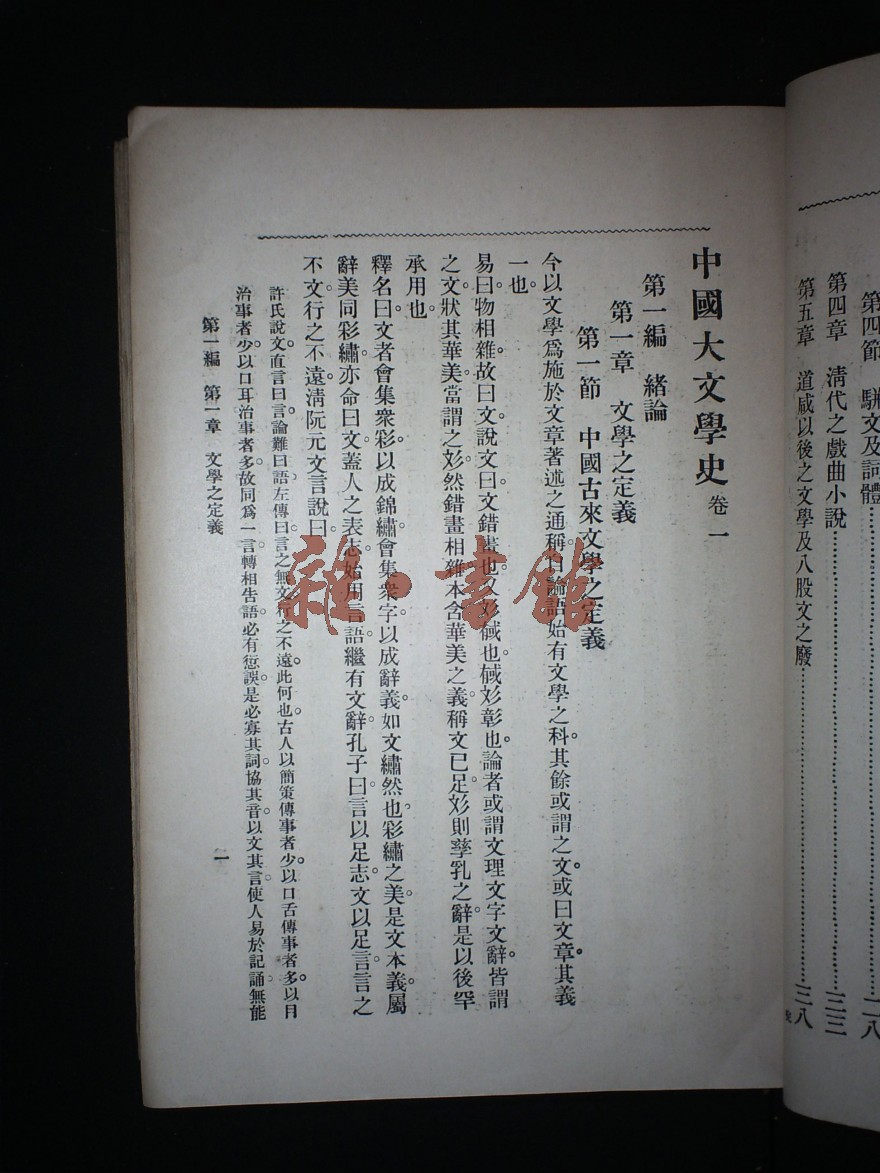 第四節　駢文及詞體……二八
第四章　淸代之戲曲小說……三三
第五章　道咸以後之文學及八股文之廢……三八
中國大文學史 卷一
第一編　緒論
第一章　文學之定義
第一節　中國古來文學之定義
今以文學爲施於文章著述之通稱。自論語始有文學之科。其餘或謂之文。或曰文章。其義
一也。
易曰。物相雜。故曰文。說文曰。文錯畫也。又彣㦽也。㦽彣彰也。論者或謂文理文字文辭。皆謂
之文。狀其華美。當謂之彣。然錯畫相雜。本含華美之義。稱文已足。彣則孳乳之辭。是以後罕
承用也。
釋名曰。文者會集衆彩。以成錦繡。會集衆字。以成辭義。如文繡然也。彩繡之美。是文本義。屬
辭美同彩繡。亦命曰文。蓋人之表志。始用言語。繼有文辭。孔子曰。言以足志。文以足言。言之
不文。行之不遠。淸阮元文言說曰。
許氏說文。直言曰言。論難曰語。左傳曰。言之無文。行之不遠。此何也。古人以簡策傳事者少。以口舌傳事者多。以目
治事者少。以口耳治事者多。故同爲一言。轉相告語。必有愆誤。是必寡其詞。協其音。以文其言。使人易於記誦。無能
第一編　第一章　文學之定義
一
雜·書館